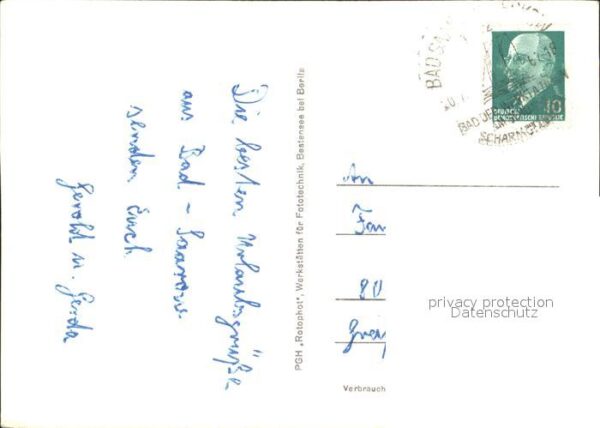 Die besten Urlaubsgrüße
aus Bad-Saarow.
senden Euch
Gerold u. Gerda
PGH „Rotophot", Werkstätten für Fototechnik, Bestensee bei Berlin
BAD SAA
20.7.
BAD UR
SCHARMÜTZ
DEUTSCHE
DEMOKRATISCHE REPUBLIK
10
An
Fam
80
Verbrauch
privacy protection
Datenschutz